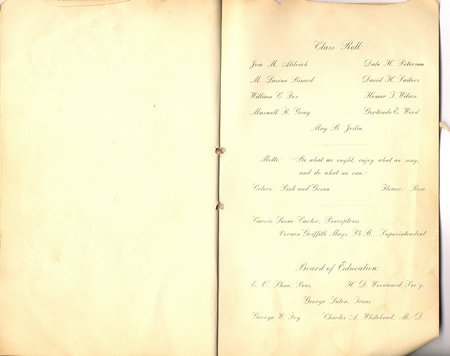 Class Roll:
Joie M. Aldrich Dale H. Peterson
M. Lavina Bisard David H. Sailors
William C. Fox Homer T. Wilson
Maxwell R. Gray Gertrude E. Wood
May B. Joslin
Motto: "Be what we ought, enjoy what we may,
and do what we can
Colors: Pink and Green Flower: Rose
Carrie Carter, Preceptress
Vernon Griffith Mays, Ph. B., Superintendent
Board of Education:
E. C. Shaw, Pres. H. D. Woodward, Sec'y.
George Luton, Treas.
George W. Fry Charles A. Whitehead, M. D.